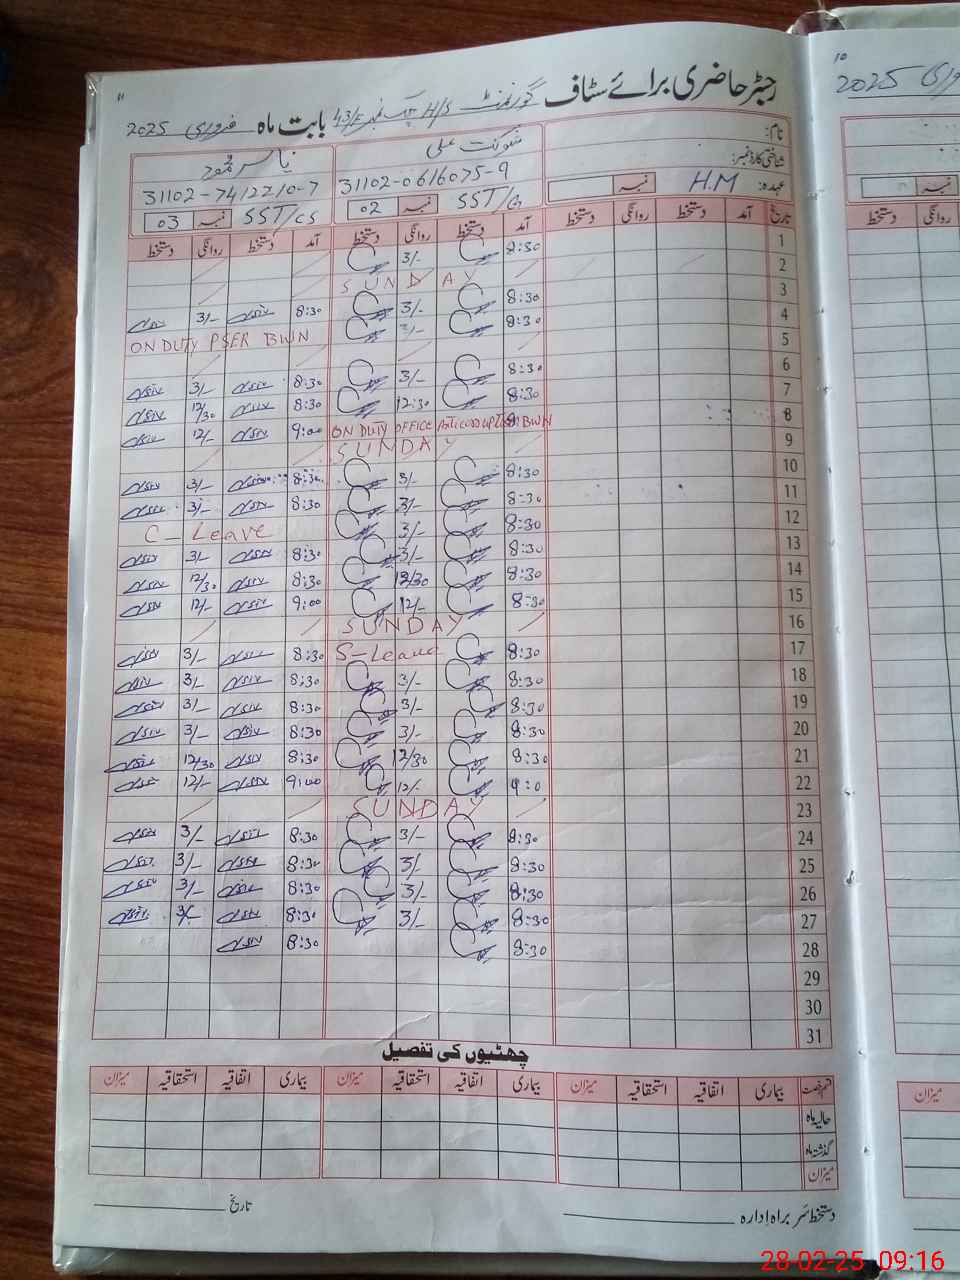 رجسٹر حاضری برائے سٹاف گورنمنٹ H/S چک نمبر 43/E بابت ماہ فروری 2025
11
10
2025
نام:
شوکت علی
یاسر محمود
شناختی کارڈ نمبر:
31102-0616075-9
31102-7412210-7
عہدہ: H.M نمبر
SST/G نمبر 02
SST/CS نمبر 03
تاریخ آمد دستخط روانگی دستخط آمد دستخط روانگی دستخط آمد دستخط روانگی دستخط
1 8:30 3/-
2 SUNDAY
3 8:30 3/- 8:30 3/-
4 8:30 3/- ON DUTY PSER BWN
5
6 8:30 3/- 8:30 3/-
7 8:30 12:30 8:30 12/30
8 ON DUTY OFFICE Anti corruption BWN 9:00 12/-
9 SUNDAY
10 8:30 3/- 8:30 3/-
11 8:30 3/- 8:30 3/-
12 8:30 3/- C-Leave
13 8:30 3/- 8:30 3/-
14 8:30 12/30 8:30 12/30
15 8:30 12/- 9:00 12/-
16 SUNDAY
17 8:30 S-Leave 8:30 3/-
18 8:30 3/- 8:30 3/-
19 8:30 3/- 8:30 3/-
20 8:30 3/- 8:30 3/-
21 8:30 12/30 8:30 12/30
22 9:0 12/- 9:00 12/-
23 SUNDAY
24 8:30 3/- 8:30 3/-
25 8:30 3/- 8:30 3/-
26 8:30 3/- 8:30 3/-
27 8:30 3/- 8:30 3/-
28 8:30 8:30
29
30
31
چھٹیوں کی تفصیل
قسم رخصت بیماری اتفاقیہ استحقاقیہ میزان بیماری اتفاقیہ استحقاقیہ میزان بیماری اتفاقیہ استحقاقیہ میزان
حالیہ ماہ
گذشتہ ماہ
میزان
دستخط سربراہ ادارہ
تاریخ
28-02-25 09:16